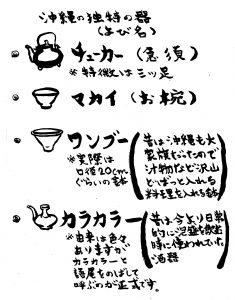 沖縄の独特の器
(よび名)
チューカー(急須)
※特徴は三ツ足
マカイ(お椀)
ワンブー
※実際は
口径20cm
ぐらいの鉢
昔は沖縄も大
家族だったので
汁物など沢山
どばっと入れる
料理を入れる鉢
カラカラー
※由来は色々
ありますが
カラカラーと
語尾をのばして
呼ぶのが正式です。
昔は今より日常
的に泡盛を飲む
時に使われていた
酒器